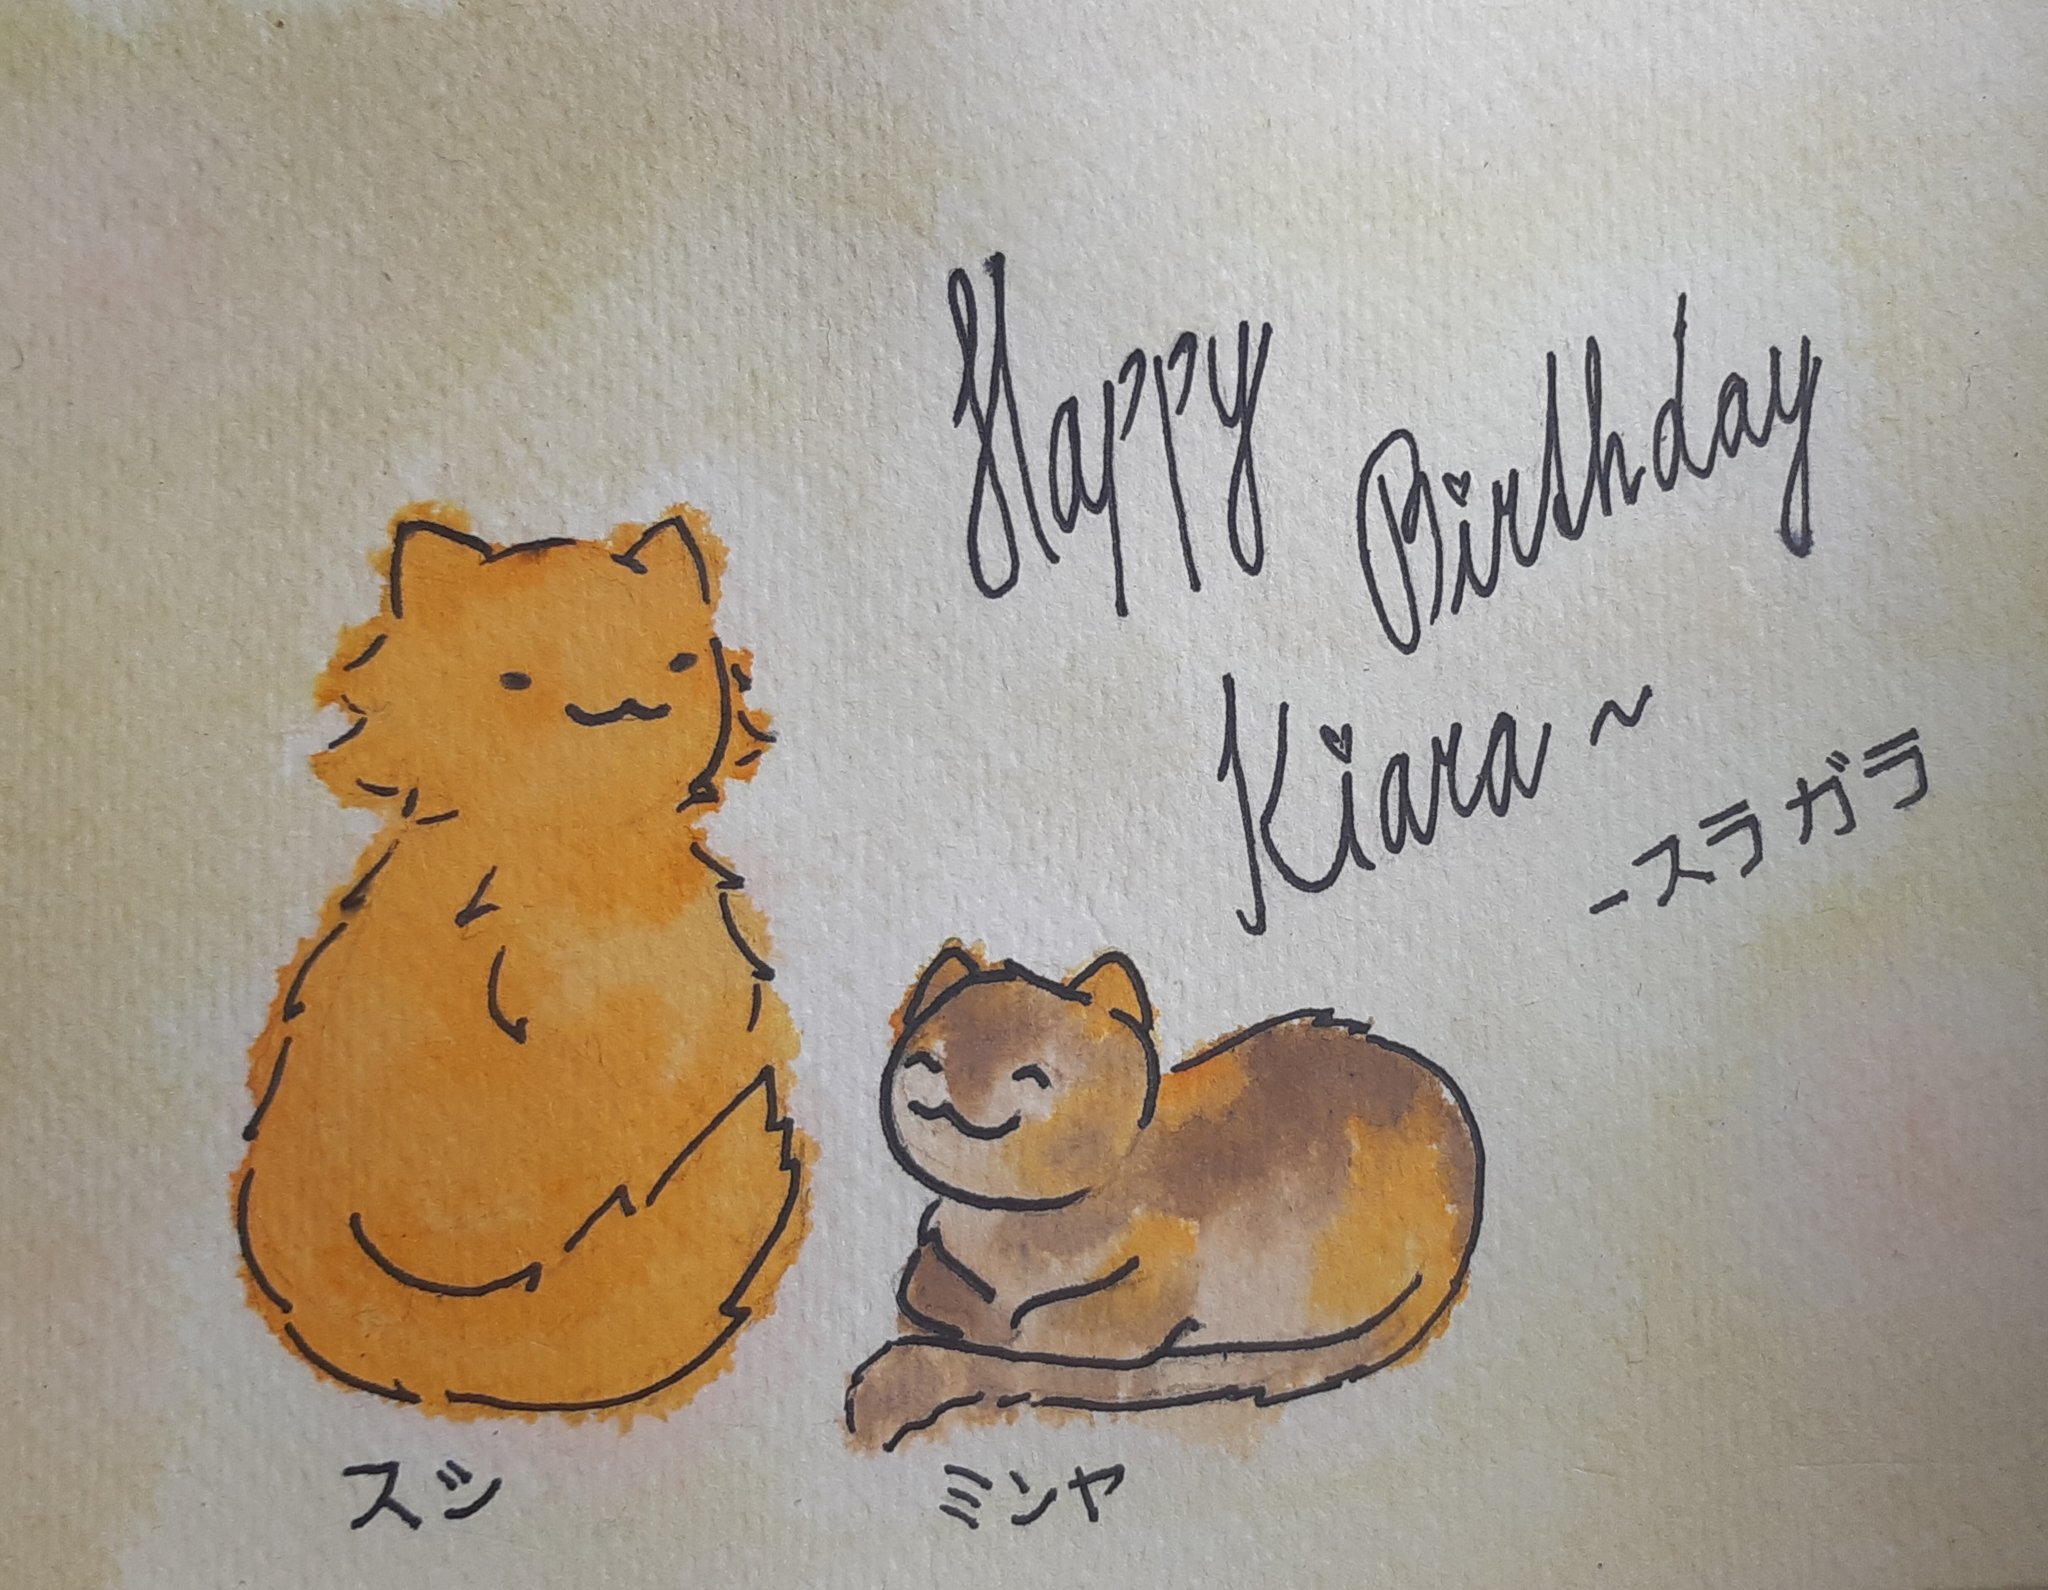 Happy
Birthday
Kiara ~
-スラガラ
スシ
ミンヤ